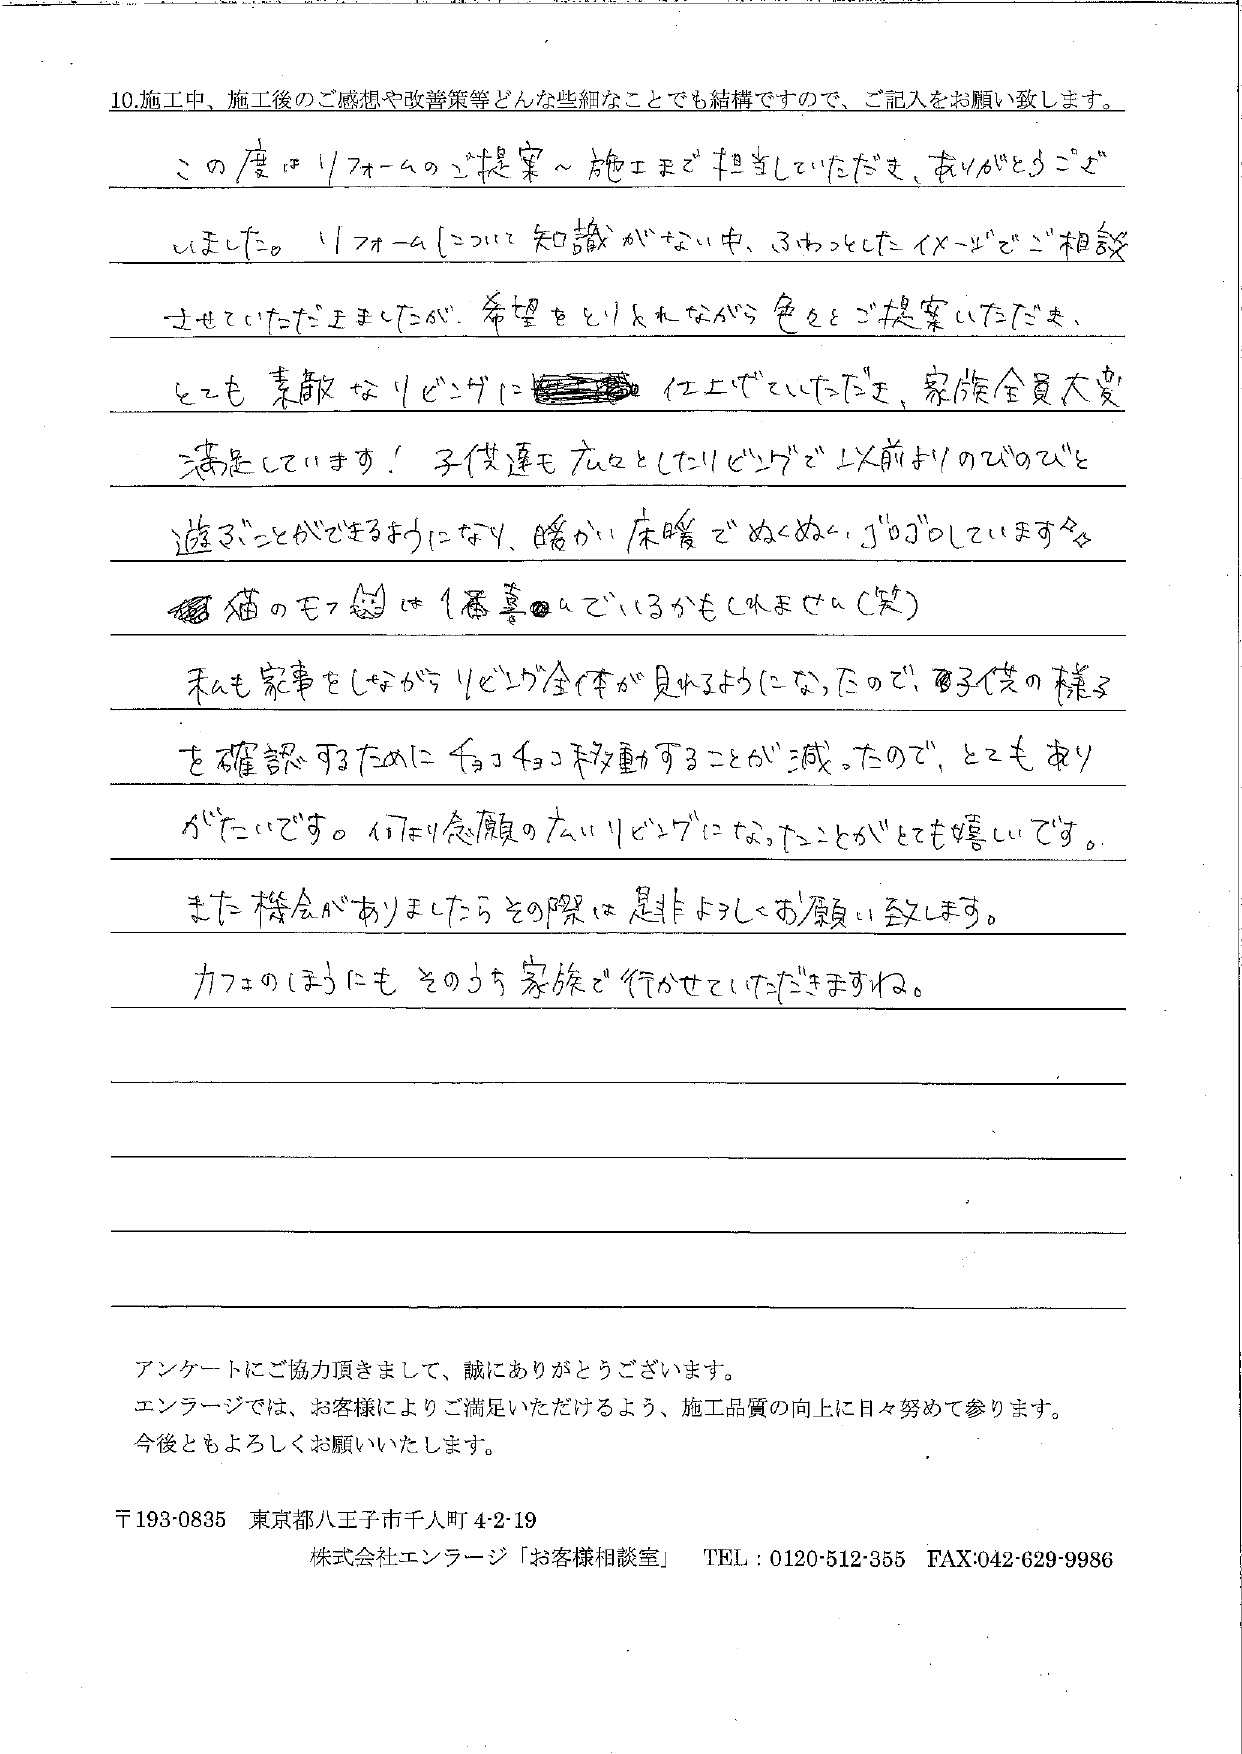 10.施工中、施工後のご感想や改善策等どんな些細なことでも結構ですので、ご記入をお願い致します。
この度はリフォームのご提案～施工まで担当していただき、ありがとうござ
いました。リフォームについて知識がない中、ふわっとしたイメージでご相談
させていただきましたが、希望をとりいれながら色々とご提案いただき、
とても素敵なリビングに仕上げていただき、家族全員大変
満足しています！子供達も広々としたリビングで以前よりのびのびと
遊ぶことができるようになり、暖かい床暖でぬくぬく、ゴロゴロしています✧✧
猫のモフは1番喜んでいるかもしれません(笑)
私も家事をしながらリビング全体が見れるようになったので、子供の様子
を確認するためにチョコチョコ移動することが減ったので、とてもあり
がたいです。何より念願の広いリビングになったことがとても嬉しいです。
また機会がありましたらその際は是非よろしくお願い致します。
カフェのほうにもそのうち家族で行かせていただきますね。
アンケートにご協力頂きまして、誠にありがとうございます。
エンラージでは、お客様によりご満足いただけるよう、施工品質の向上に日々努めて参ります。
今後ともよろしくお願いいたします。
〒193-0835 東京都八王子市千人町 4-2-19
株式会社エンラージ「お客様相談室」 TEL : 0120-512-355 FAX:042-629-9986